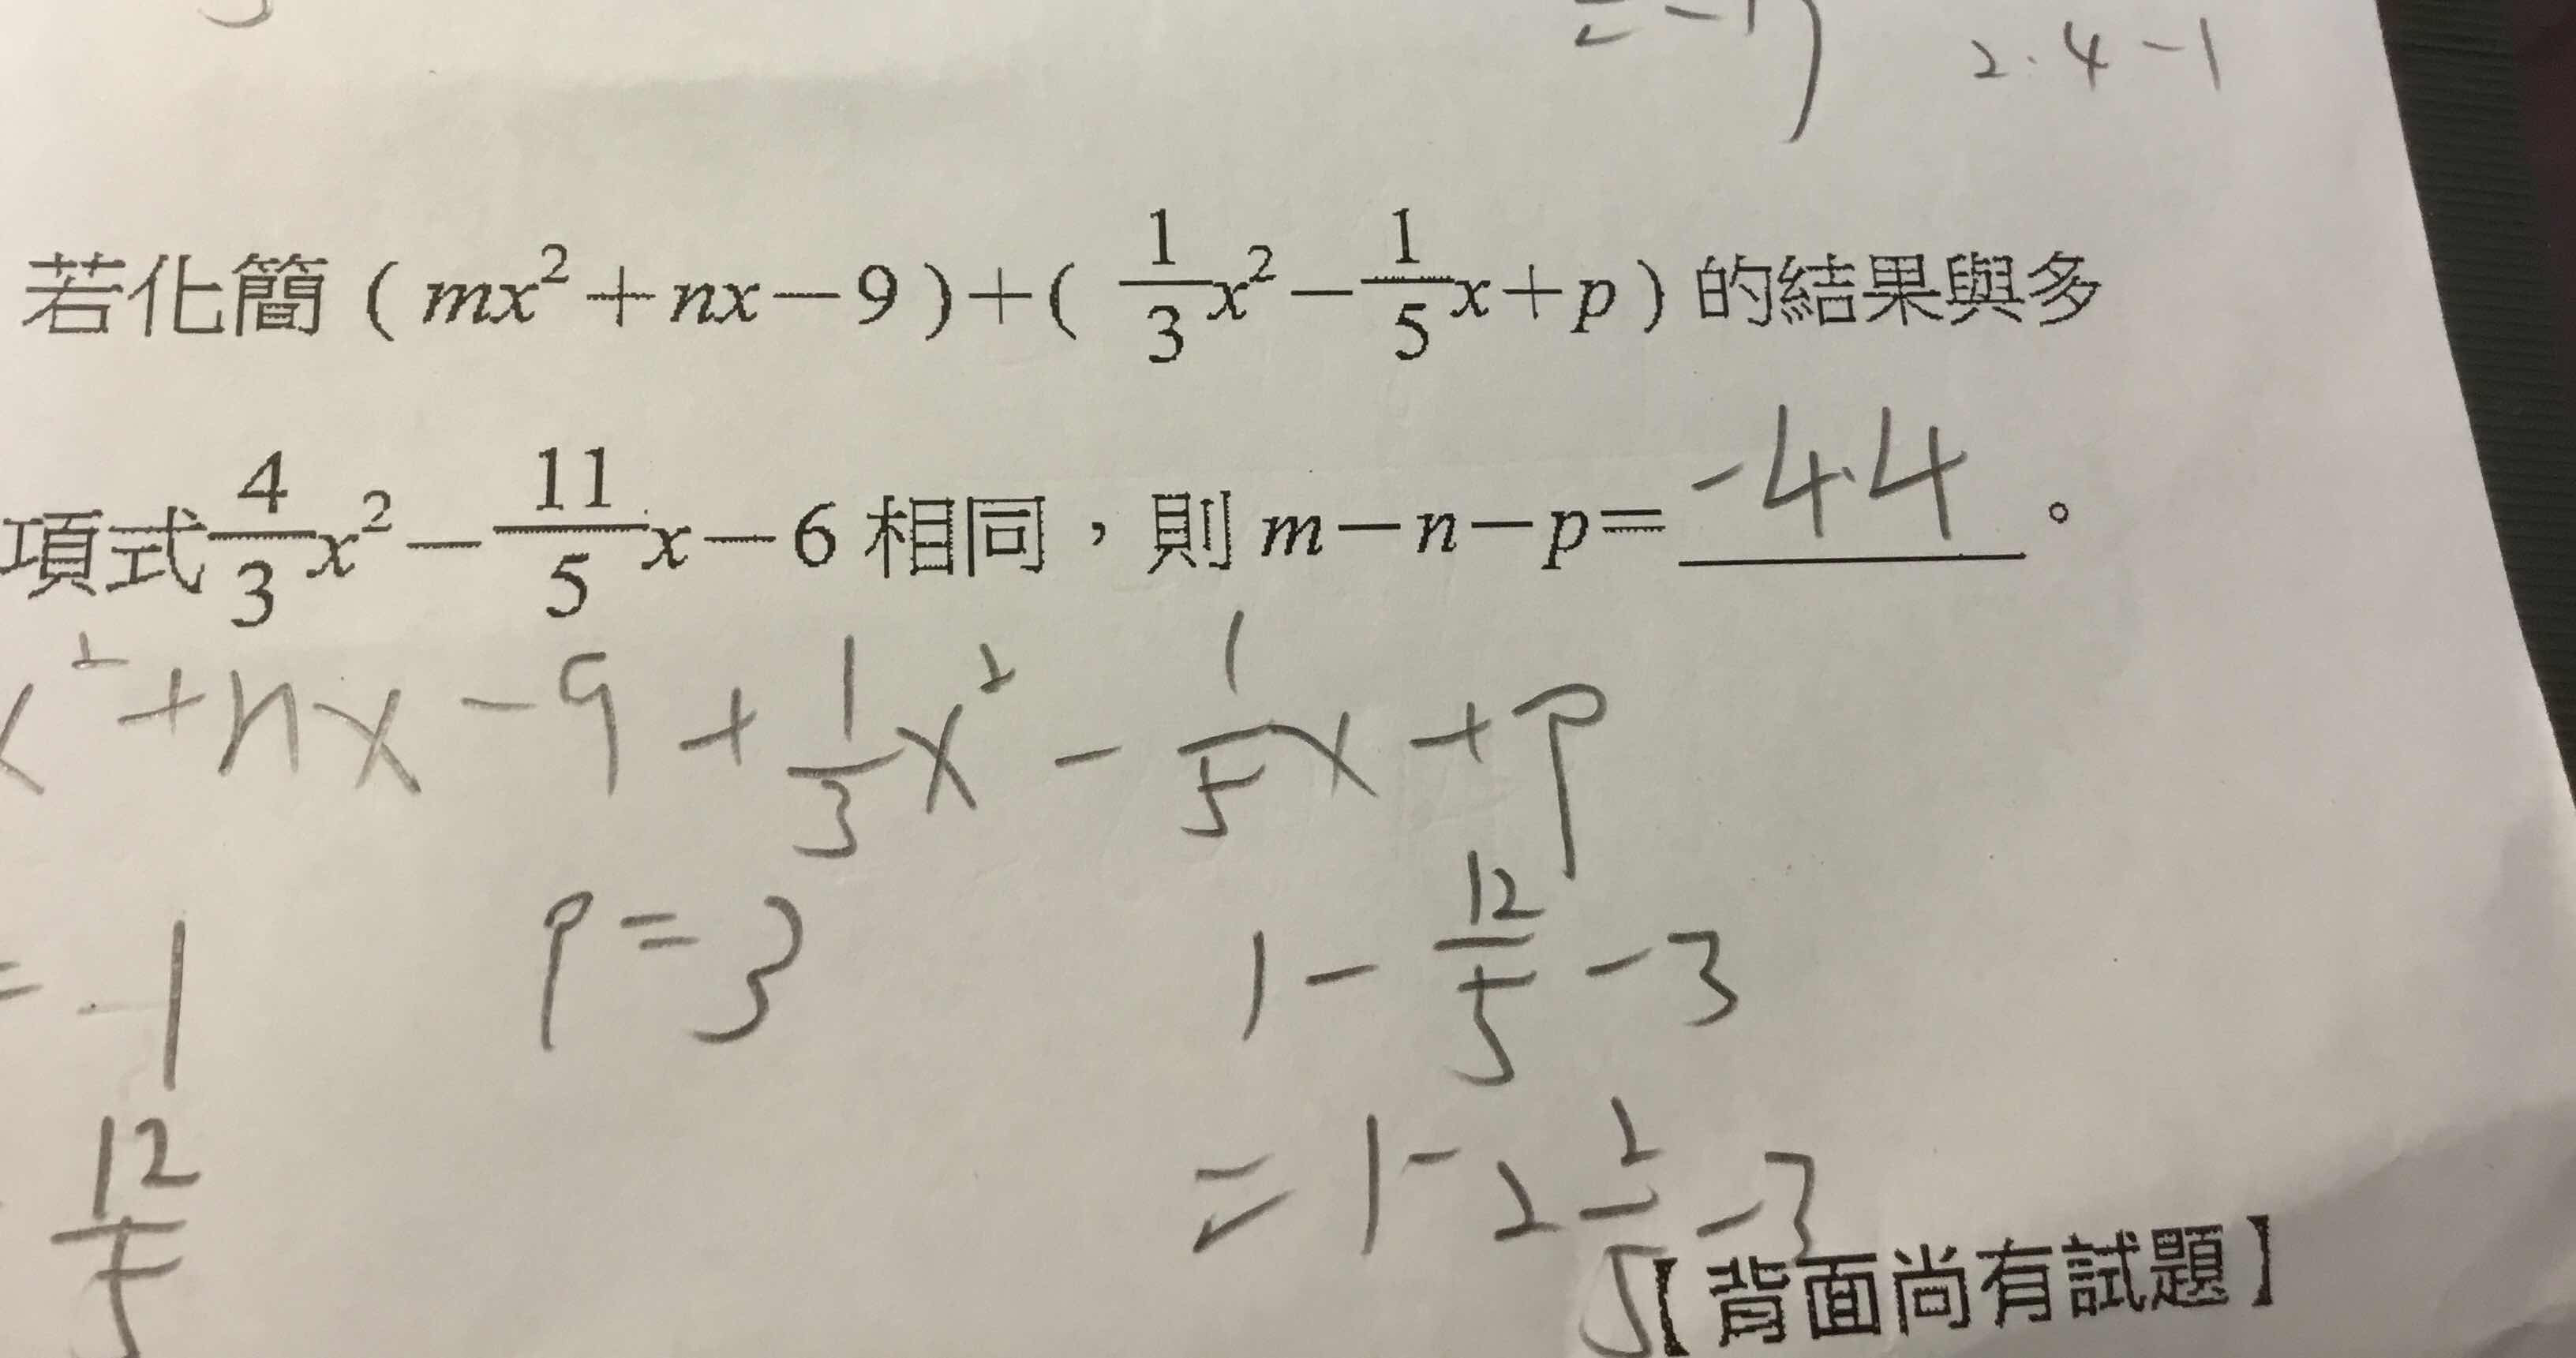 = -17 2.4-1
若化簡 ( mx²+nx-9 )+( \frac{1}{3}x²-\frac{1}{5}x+p ) 的結果與多
項式\frac{4}{3}x²-\frac{11}{5}x-6 相同,則 m-n-p= -4.4 。
x²+nx-9+\frac{1}{3}x²-\frac{1}{5}x+p
= -1 p=3 1-\frac{12}{5}-3
\frac{12}{5} =1-2\frac{2}{5}-3
【背面尚有試題】